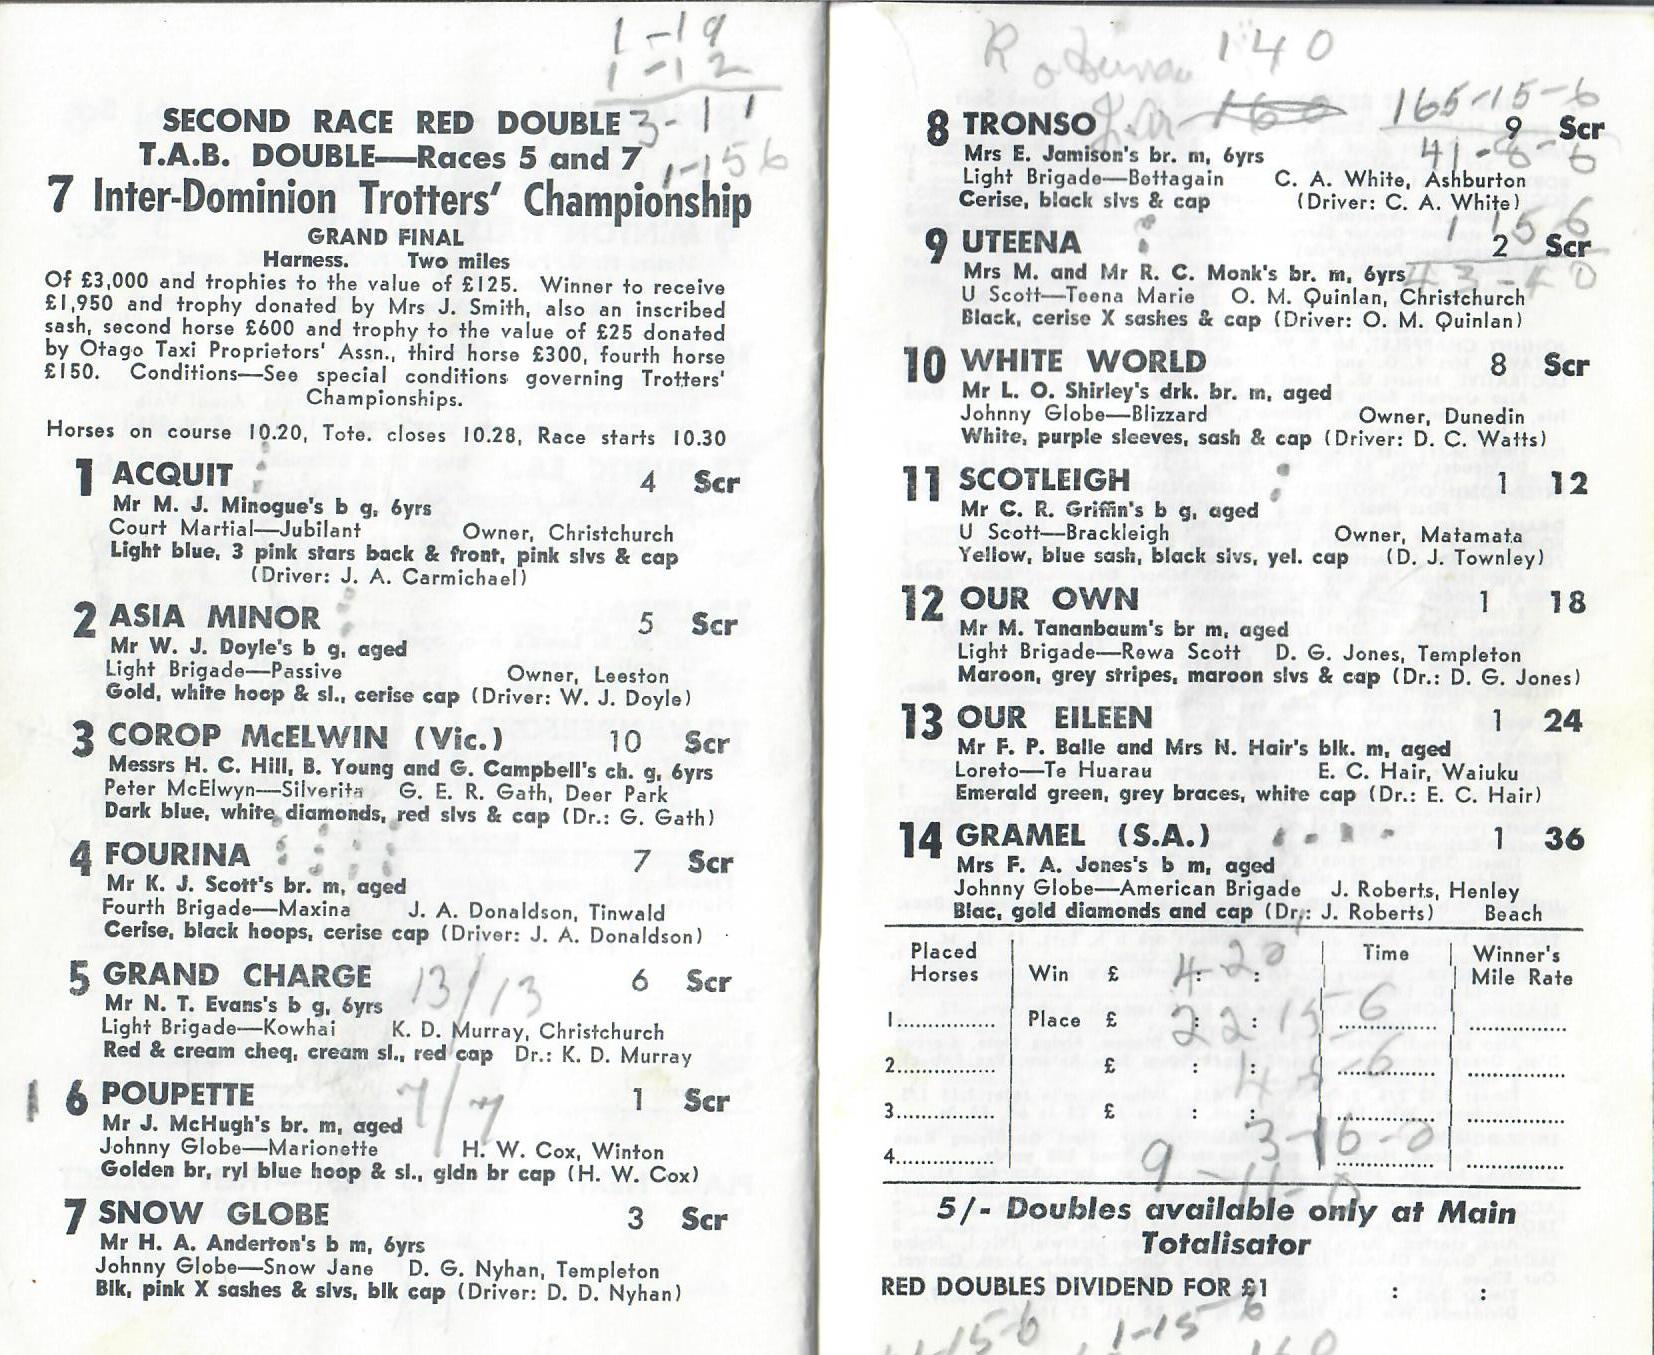 1-19
1-12
3-11
1-15 6
SECOND RACE RED DOUBLE
T.A.B. DOUBLE—Races 5 and 7
7 Inter-Dominion Trotters' Championship
GRAND FINAL
Harness. Two miles
Of £3,000 and trophies to the value of £125. Winner to receive
£1,950 and trophy donated by Mrs J. Smith, also an inscribed
sash, second horse £600 and trophy to the value of £25 donated
by Otago Taxi Proprietors' Assn., third horse £300, fourth horse
£150. Conditions—See special conditions governing Trotters'
Championships.
Horses on course 10.20, Tote. closes 10.28, Race starts 10.30
1 ACQUIT 4 Scr
Mr M. J. Minogue's b g, 6yrs
Court Martial—Jubilant Owner, Christchurch
Light blue, 3 pink stars back & front, pink slvs & cap
(Driver: J. A. Carmichael)
2 ASIA MINOR 5 Scr
Mr W. J. Doyle's b g, aged
Light Brigade—Passive Owner, Leeston
Gold, white hoop & sl., cerise cap (Driver: W. J. Doyle)
3 COROP McELWIN (Vic.) 10 Scr
Messrs H. C. Hill, B. Young and G. Campbell's ch. g, 6yrs
Peter McElwyn—Silverita G. E. R. Gath, Deer Park
Dark blue, white diamonds, red slvs & cap (Dr.: G. Gath)
4 FOURINA 7 Scr
Mr K. J. Scott's br. m, aged
Fourth Brigade—Maxina J. A. Donaldson, Tinwald
Cerise, black hoops, cerise cap (Driver: J. A. Donaldson)
5 GRAND CHARGE 13/13 6 Scr
Mr N. T. Evans's b g, 6yrs
Light Brigade—Kowhai K. D. Murray, Christchurch
Red & cream cheq, cream sl., red cap Dr.: K. D. Murray
1 6 POUPETTE 7/7 1 Scr
Mr J. McHugh's br. m, aged
Johnny Globe—Marionette H. W. Cox, Winton
Golden br, ryl blue hoop & sl., gldn br cap (H. W. Cox)
7 SNOW GLOBE 3 Scr
Mr H. A. Anderton's b m, 6yrs
Johnny Globe—Snow Jane D. G. Nyhan, Templeton
Blk, pink X sashes & slvs, blk cap (Driver: D. D. Nyhan)
140
160 165-15-6
8 TRONSO 9 Scr
Mrs E. Jamison's br. m, 6yrs 41-8-6
Light Brigade—Bettagain C. A. White, Ashburton
Cerise, black slvs & cap (Driver: C. A. White)
1 15 6
9 UTEENA 2 Scr
Mrs M. and Mr R. C. Monk's br. m, 6yrs 43-4 0
U Scott—Teena Marie O. M. Quinlan, Christchurch
Black, cerise X sashes & cap (Driver: O. M. Quinlan)
10 WHITE WORLD 8 Scr
Mr L. O. Shirley's drk. br. m, aged
Johnny Globe—Blizzard Owner, Dunedin
White, purple sleeves, sash & cap (Driver: D. C. Watts)
11 SCOTLEIGH 1 12
Mr C. R. Griffin's b g, aged
U Scott—Brackleigh Owner, Matamata
Yellow, blue sash, black slvs, yel. cap (D. J. Townley)
12 OUR OWN 1 18
Mr M. Tananbaum's br m, aged
Light Brigade—Rewa Scott D. G. Jones, Templeton
Maroon, grey stripes, maroon slvs & cap (Dr.: D. G. Jones)
13 OUR EILEEN 1 24
Mr F. P. Balle and Mrs N. Hair's blk. m, aged
Loreto—Te Huarau E. C. Hair, Waiuku
Emerald green, grey braces, white cap (Dr.: E. C. Hair)
14 GRAMEL (S.A.) 1 36
Mrs F. A. Jones's b m, aged
Johnny Globe—American Brigade J. Roberts, Henley
Blac, gold diamonds and cap (Dr.: J. Roberts) Beach
Placed Horses Win £ : : Time Winner's Mile Rate
4 20
1............... Place £ : : ............... ...............
22 15-6
2............... £ : : ............... ...............
4-5-6
3............... £ : :
3-16-0
4............... ............... ...............
9-11-0
5/- Doubles available only at Main
Totalisator
RED DOUBLES DIVIDEND FOR £1 : :
1-15-6